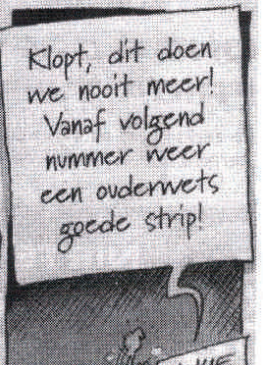 Klopt, dit doen
we nooit meer!
Vanaf volgend
nummer weer
een ouderwets
goede strip!